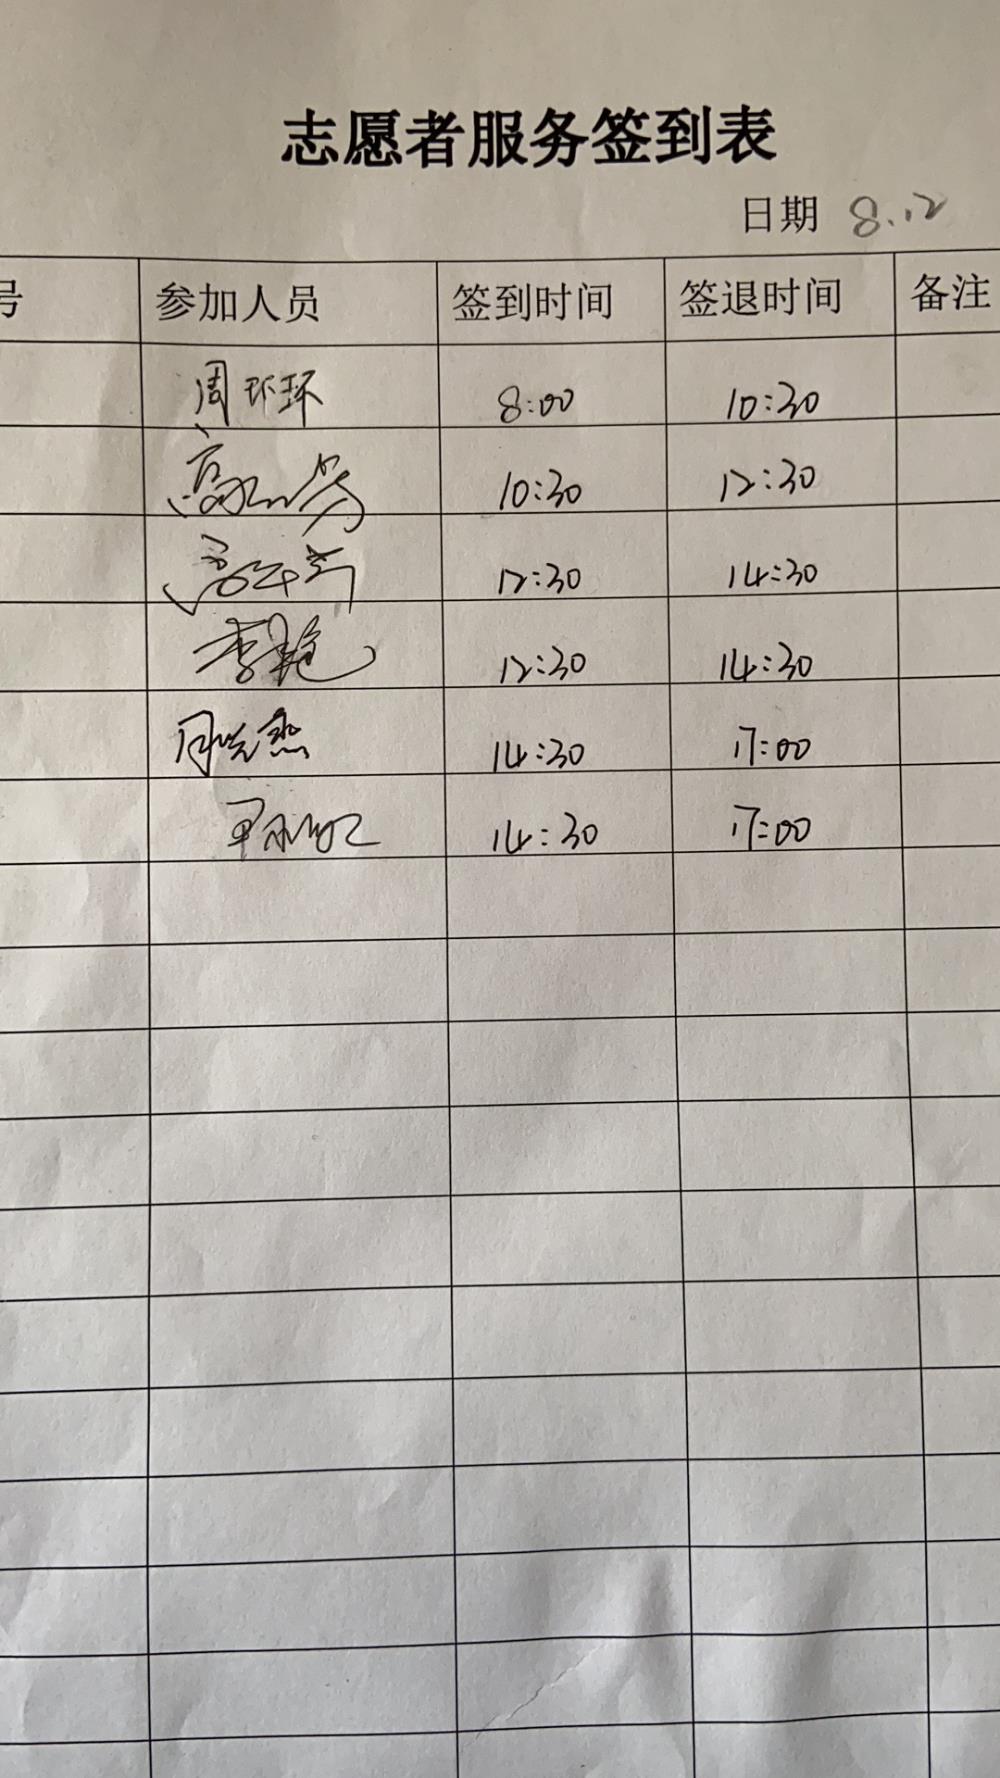 志愿者服务签到表
日期 8.12
号 参加人员 签到时间 签退时间 备注
周环环 8:00 10:30
10:30 12:30
12:30 14:30
李艳 12:30 14:30
14:30 17:00
14:30 17:00